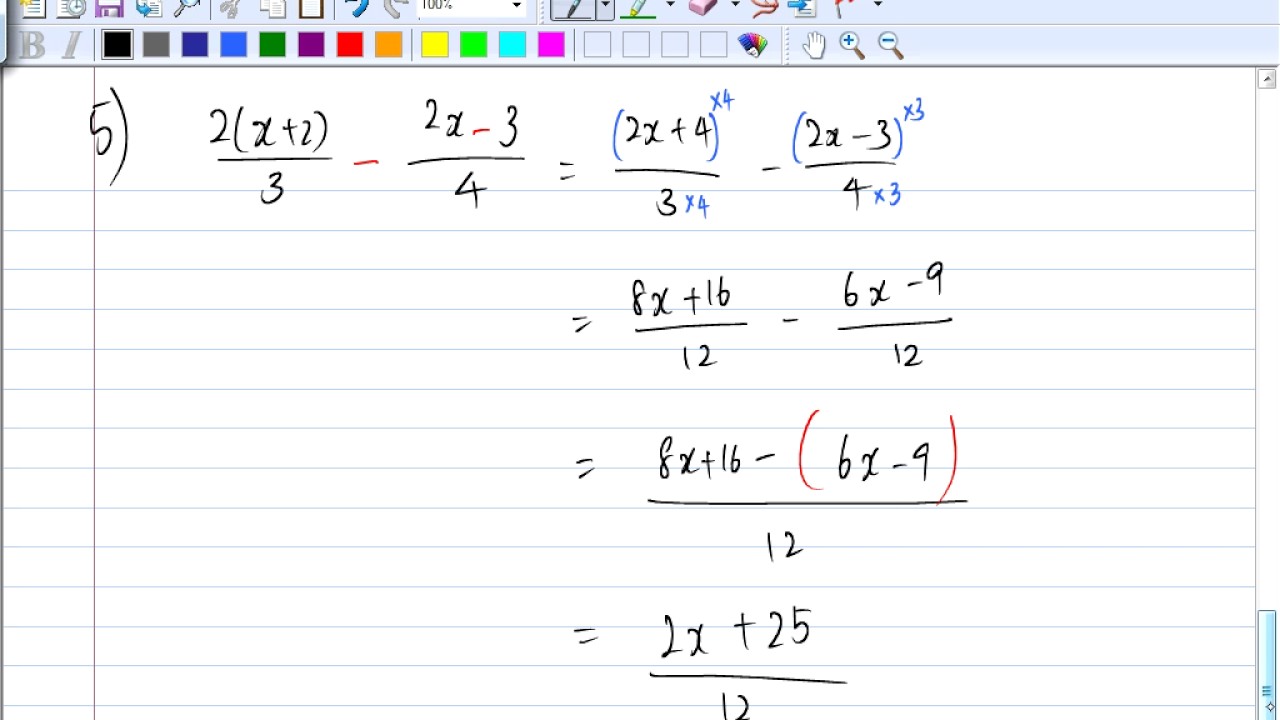 100%
B I
5) 2(x+2)/3 - 2x-3/4 = (2x+4)×4/3×4 - (2x-3)×3/4×3
= 8x+16/12 - 6x-9/12
= 8x+16-(6x-9)/12
= 2x+25/12